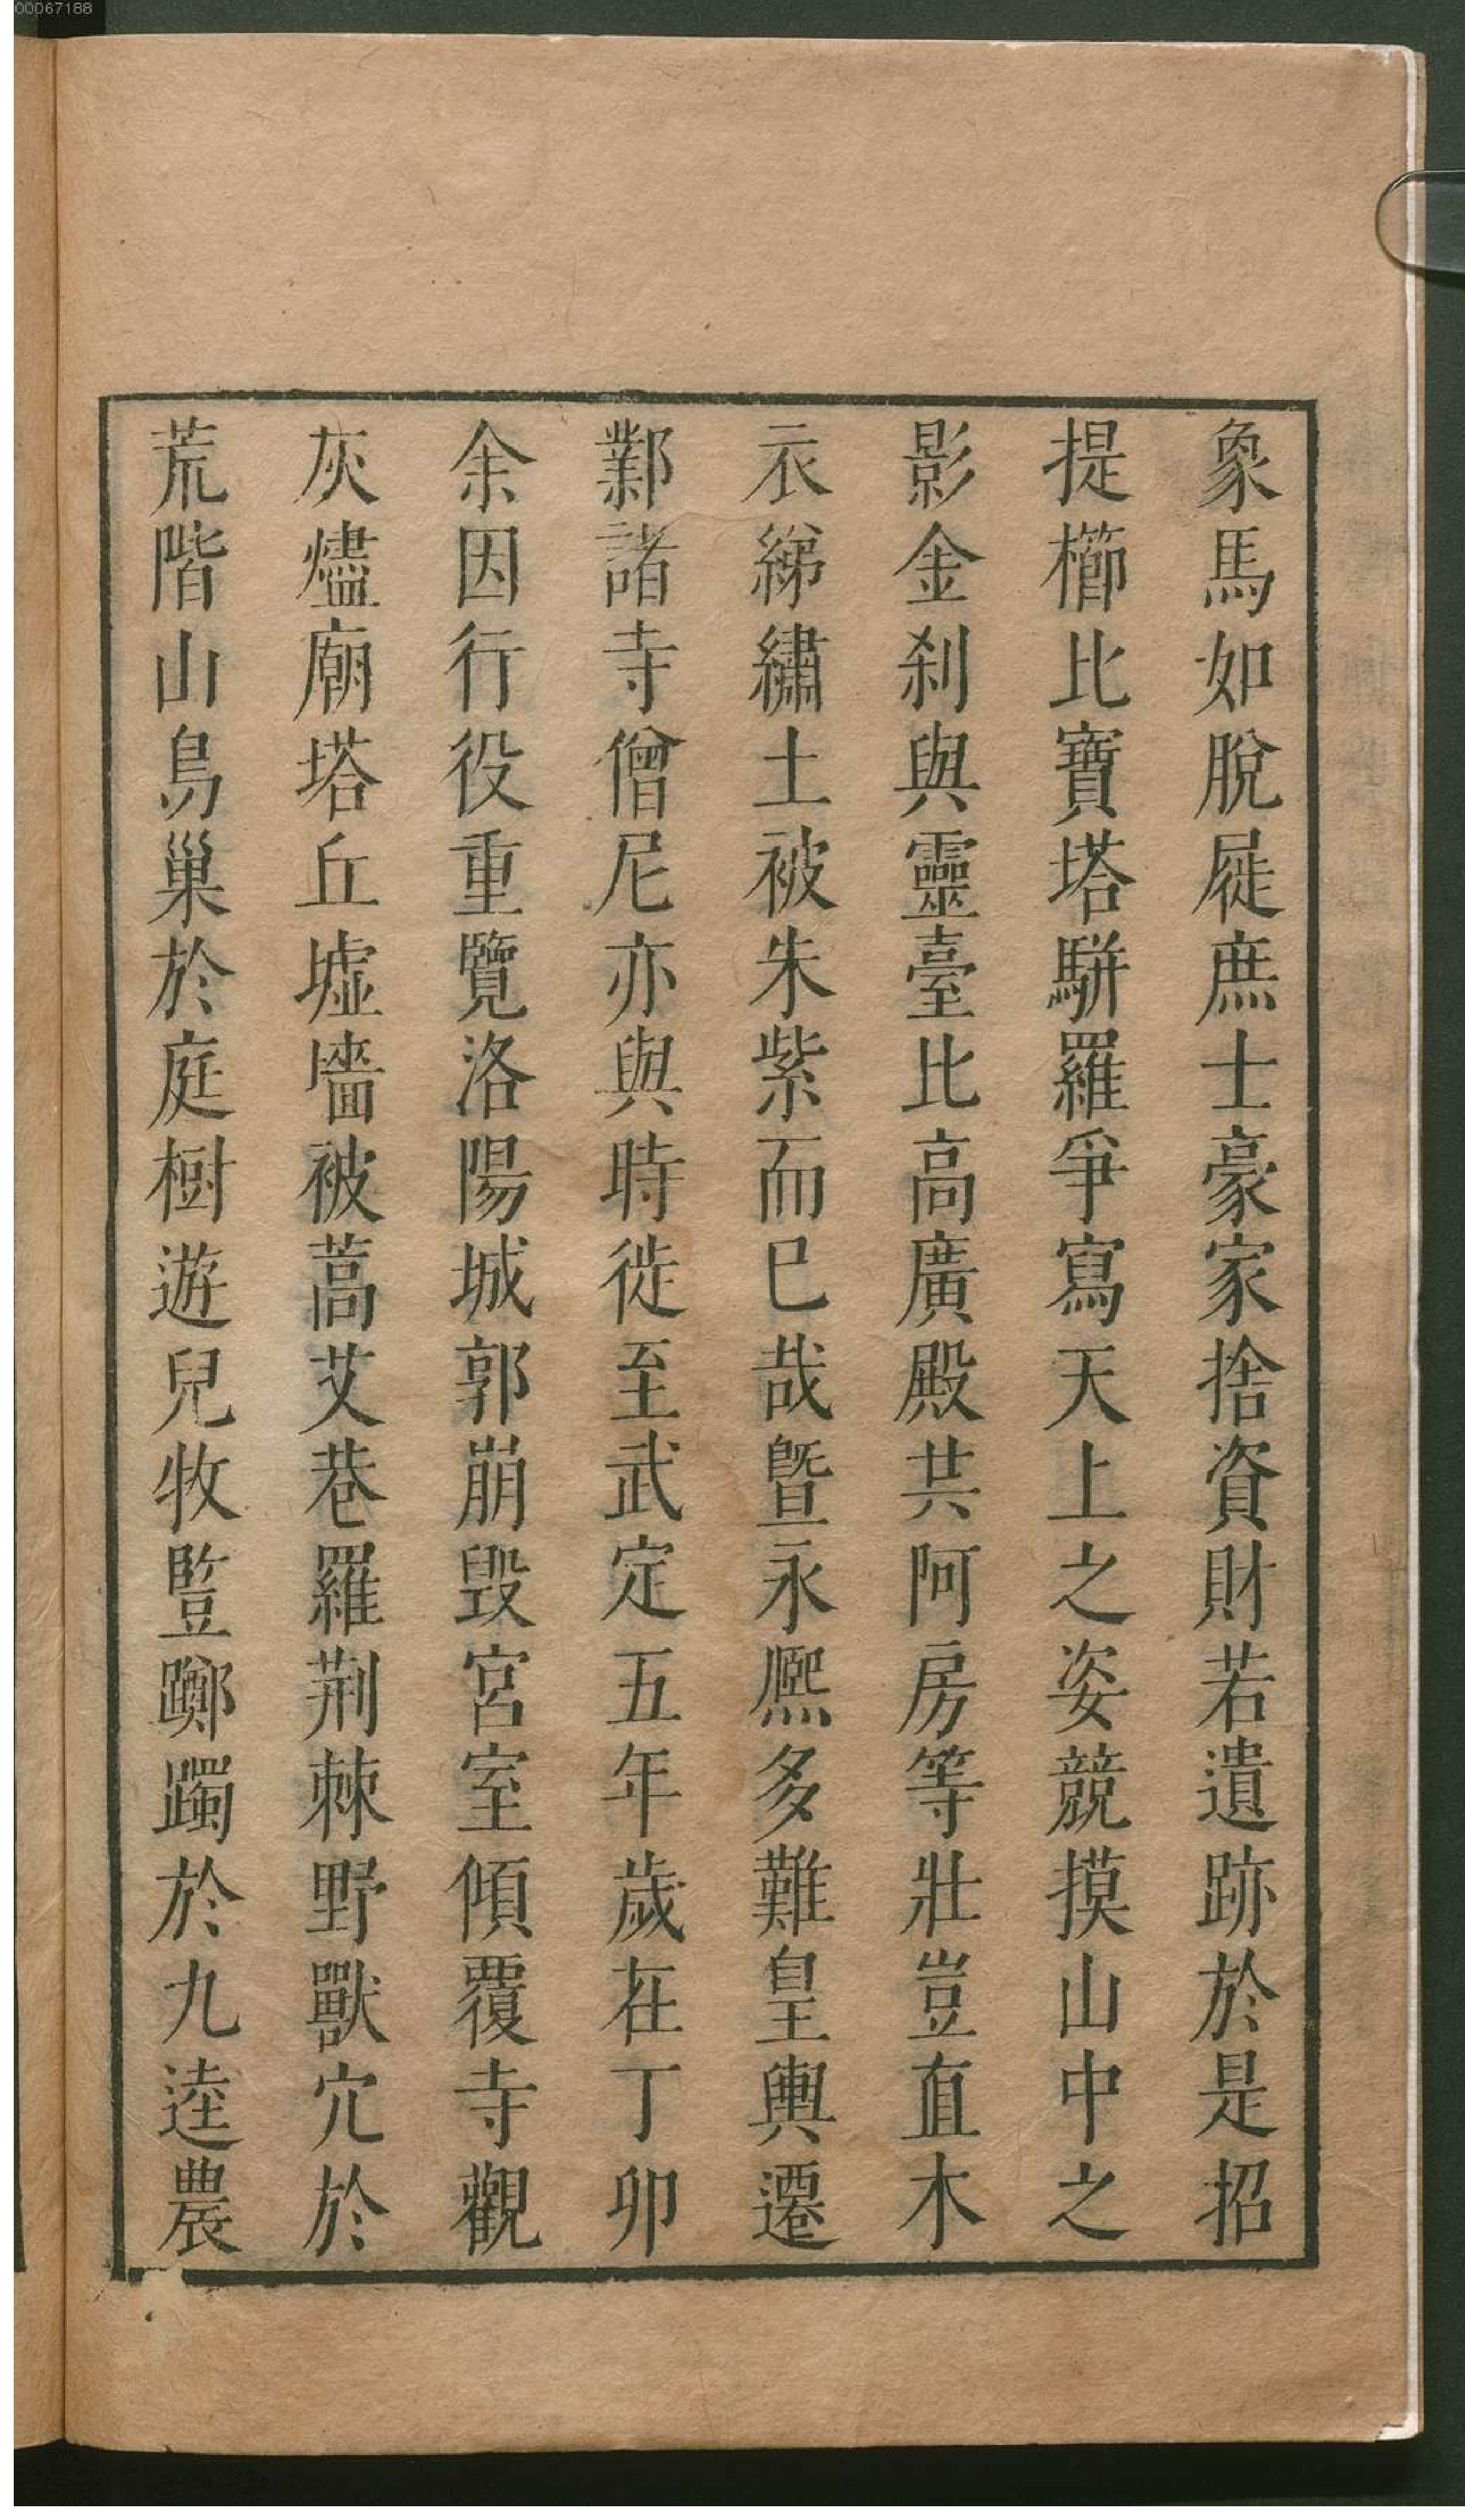 00067188
象馬如脫屣庶士豪家捨資財若遺跡於是招
提櫛比寶塔駢羅爭寫天上之姿競摸山中之
影金刹與靈臺比高廣殿共阿房等壯豈直木
衣綈繡土被朱紫而已哉曁永熈多難皇輿遷
鄴諸寺僧尼亦與時徙至武定五年歲在丁卯
余因行役重覽洛陽城郭崩毀宮室傾覆寺觀
灰燼廟塔丘墟墻被蒿艾巷羅荆棘野獸穴於
荒階山鳥巢於庭樹遊兒牧豎躑躅於九逵農